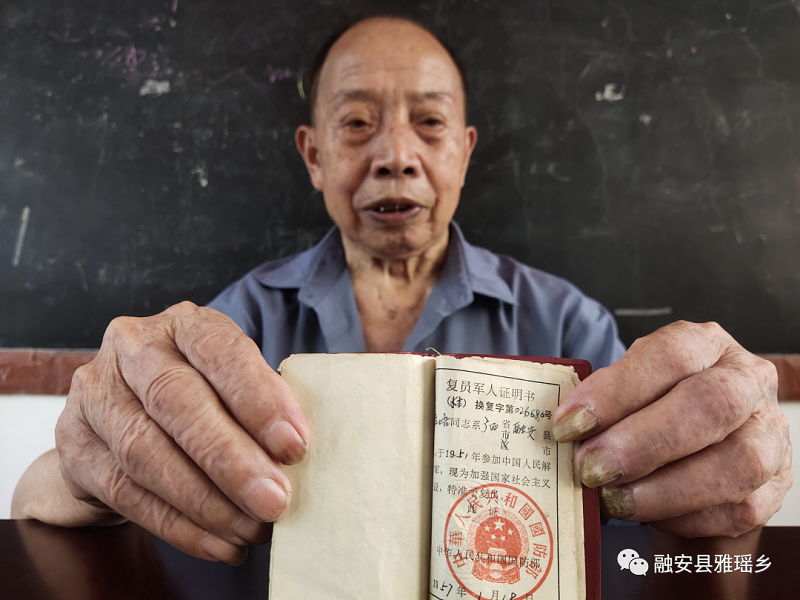 复员军人证明书
换复字第026680号
同志系广西省融安县
市 市
于1951年参加中国人民解
军，现为加强国家社会主义
设，特准予复员。
此证
中华人民共和国国防部
中华人民共和国国防部
1957年1月18日
融安县雅瑶乡